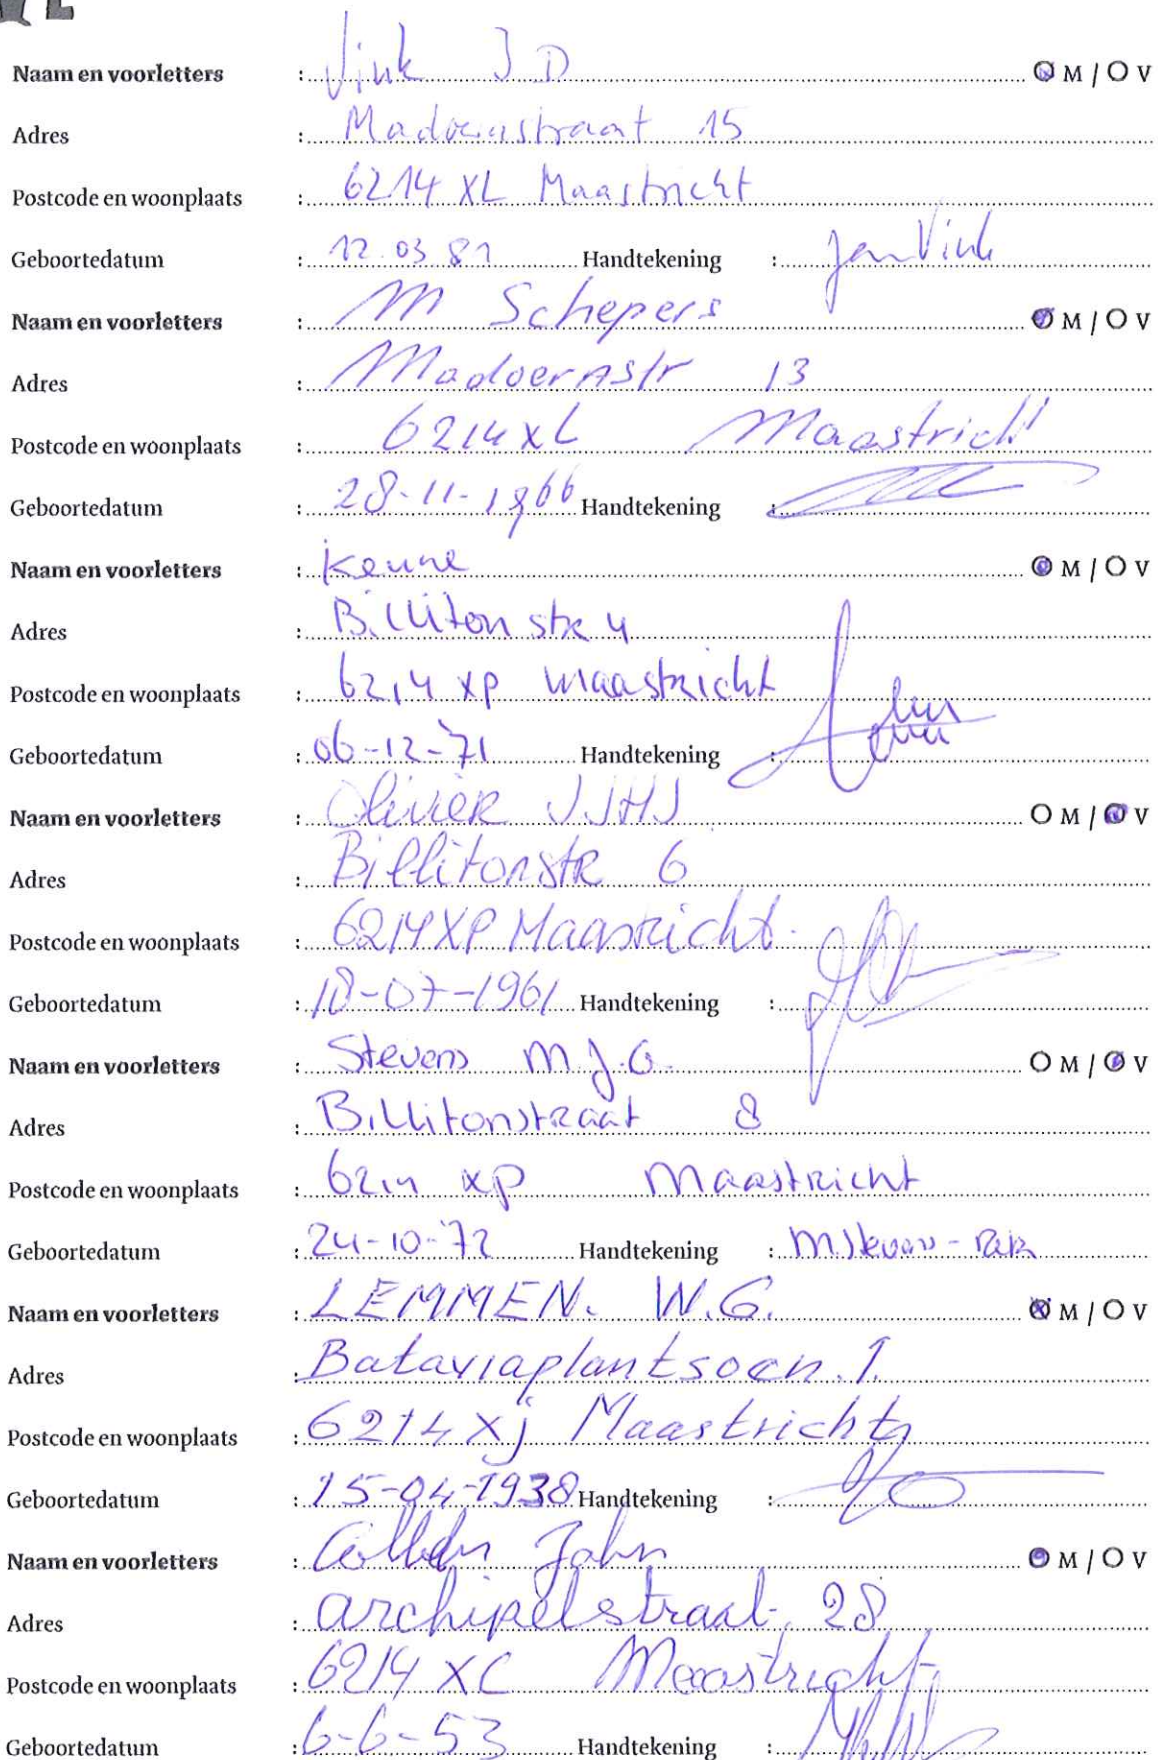 Naam en voorletters : Vink J D O M / O V
Adres : Madoerastraat 15
Postcode en woonplaats : 6214 XL Maastricht
Geboortedatum : 12.03 81 Handtekening : Jan Vink
Naam en voorletters : M Schepers O M / O V
Adres : Madoerastr 13
Postcode en woonplaats : 6214 XL Maastricht
Geboortedatum : 28-11-1966 Handtekening :
Naam en voorletters : Keune O M / O V
Adres : Billiton str 4
Postcode en woonplaats : 6214 XP Maastricht
Geboortedatum : 06-12-71 Handtekening :
Naam en voorletters : Olivier J.J.H.J O M / O V
Adres : Billitonstr 6
Postcode en woonplaats : 6214 XP Maastricht.
Geboortedatum : 18-07-1961 Handtekening :
Naam en voorletters : Stevens M.J.G. O M / O V
Adres : Billitonstraat 8
Postcode en woonplaats : 6214 XP Maastricht
Geboortedatum : 24-10-'72 Handtekening : M Stevens -
Naam en voorletters : LEMMEN. W.G. O M / O V
Adres : Bataviaplantsoen. 1.
Postcode en woonplaats : 6214 Xj Maastricht
Geboortedatum : 15-04-1938 Handtekening :
Naam en voorletters : John O M / O V
Adres : archipelstraat 28
Postcode en woonplaats : 6214 XC Maastricht
Geboortedatum : 6-6-53 Handtekening :